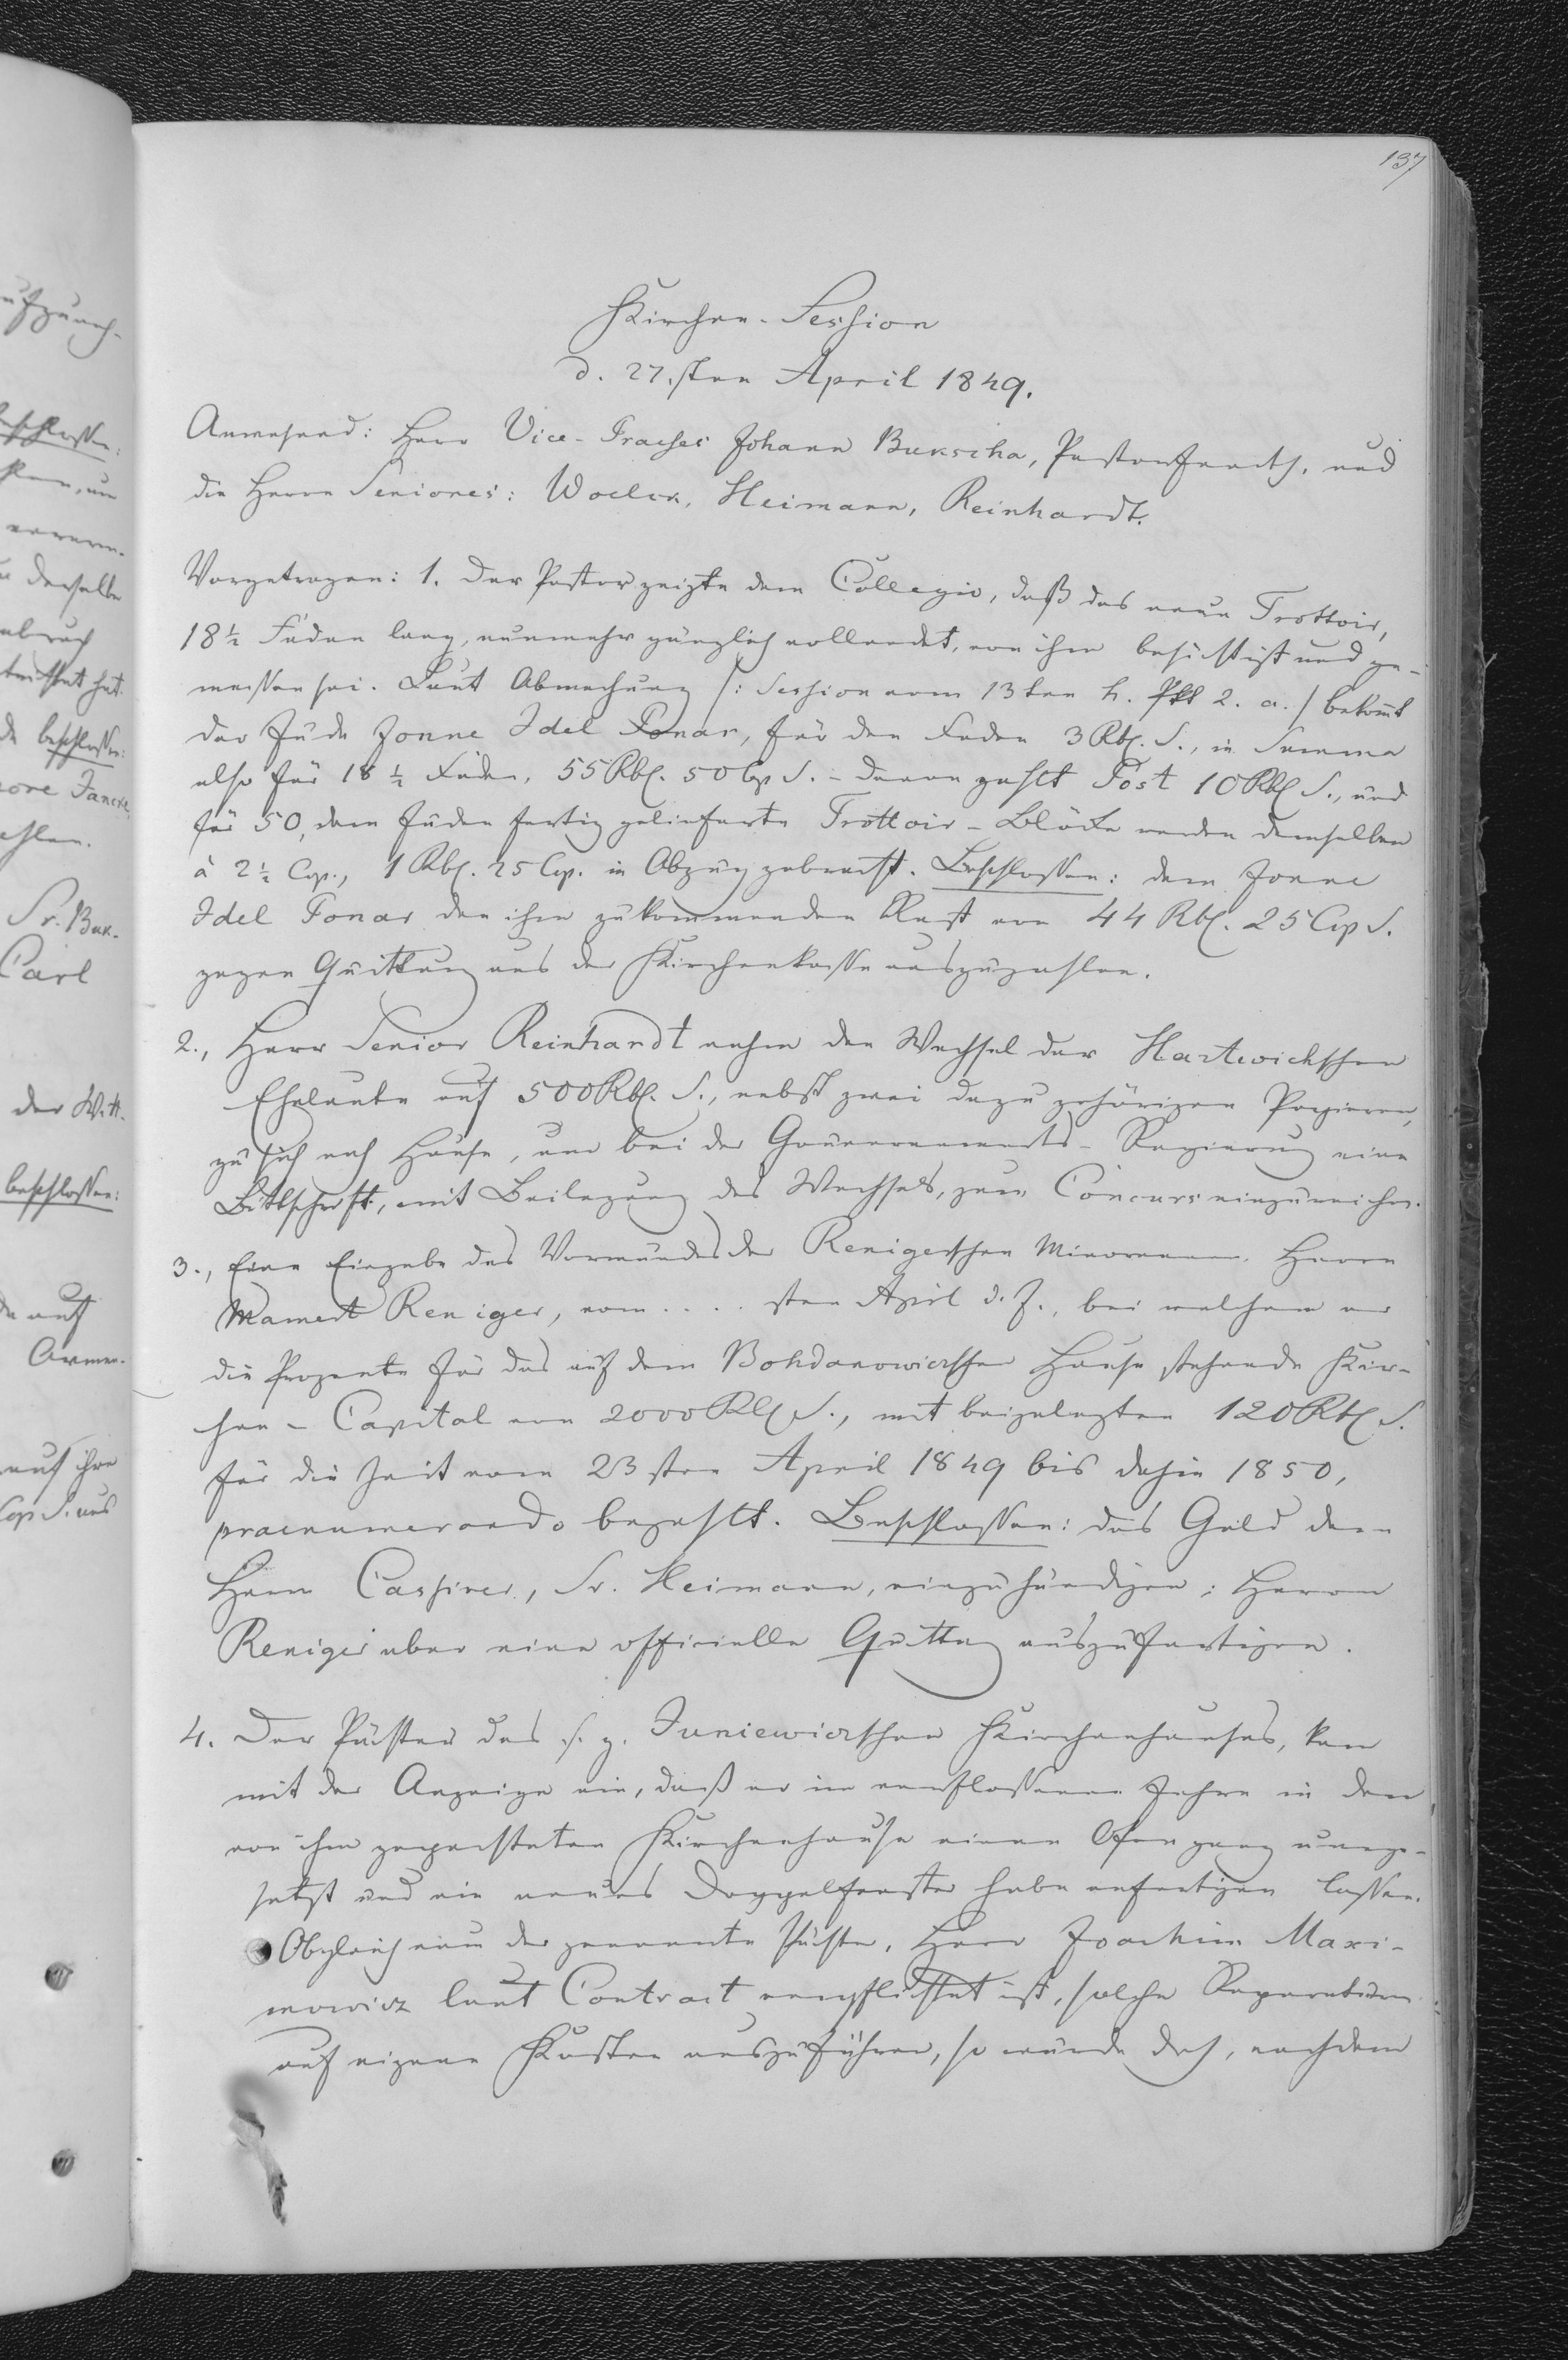 137
Kirchen-Session
d. 27.sten April 1849.
Anwesend: Herr Vice-Praeses Johann Bukscha, Pastor und
die Herrn Seniores: Woelck, Heimann, Reinhardt.
Vorgetragen: 1. Der Pastor zeigte dem Collegio, daß das neue Trottoir,
18½ Faden lang, nunmehr gänzlich vollendet, von ihm besichtigt und ge-
messen sei. Laut Abmachung /: Session vom 13ten h. Pkt 2. a. / bekomt
der Jude Jonne Idel Fonar, für den Faden 3 Rbl. S., in Summa
also für 18½ Faden, 55 Rbl. 50 Cop S. – davon zahlt Post 10 Rbl S., und
für 50, dem Juden fertig gelieferte Trottoir-Blöcke werden demselben
à 2½ Cop., 1 Rbl. 25 Cop. in Abzug gebracht. Beschlossen: dem Jonne
Idel Fonar den ihm zukommenden Rest von 44 Rbl. 25 Cop S.
gegen Quittung aus der Kirchenkasse auszuzahlen.
2., Herr Senior Reinhardt nahm den Wechsel der Hartwichschen
Eheleute auf 500 Rbl. S., nebst zwei dazu gehörigen Papieren,
zu sich nach Hause, um bei der Gouvernements-Regierung eine
Bittschrift, mit Beilegung des Wechsels, zum Concurs einzureichen.
3., Eine Eingabe des Vormundes der Renigerschen Minorennen, Herrn
Mamert Reniger, vom .... sten April d. J., bei welchem er
die Prozente für das auf dem Bohdanowiczschen Hause stehende Kir-
chen-Capital von 2000 Rbl S., mit beigelegten 120 Rbl S.
für die Zeit vom 23sten April 1849 bis dahin 1850,
praenumerando bezahlt. Beschlossen: das Geld dem
Herrn Cassirer, Sr. Heimann, einzuhändigen; Herrn
Reniger aber eine officielle Quittung auszufertigen.
4. Der Pächter des s. g. Juniewiczschen Kirchenhauses, kam
mit der Anzeige ein, daß er im verflossenen Jahre in dem,
von ihm gepachteten Kirchenhause einen Ofen ganz umge-
setzt und ein neues Doppelfenster habe anfertigen lassen.
Obgleich nun der genannte Pächter, Herr Joachim Maxi-
mowicz laut Contract verpflichtet ist, solche Reparaturen
auf eigene Kosten auszuführen, so wurde doch, nachdem